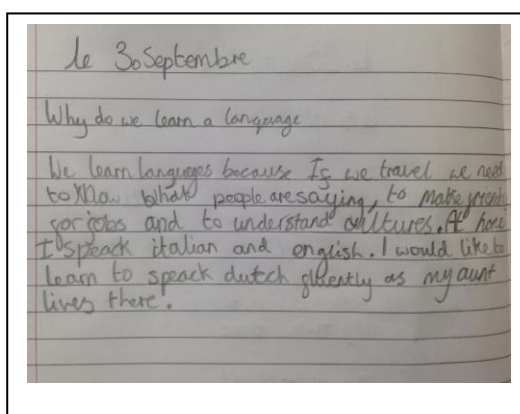 le 30 Septembre
Why do we learn a language
We learn languages because If we travel we need
to know what people are saying, to make friends
for jobs and to understand cultures. At home
I speack italian and english. I would like to
learn to speack dutch fluently as my aunt
lives there.